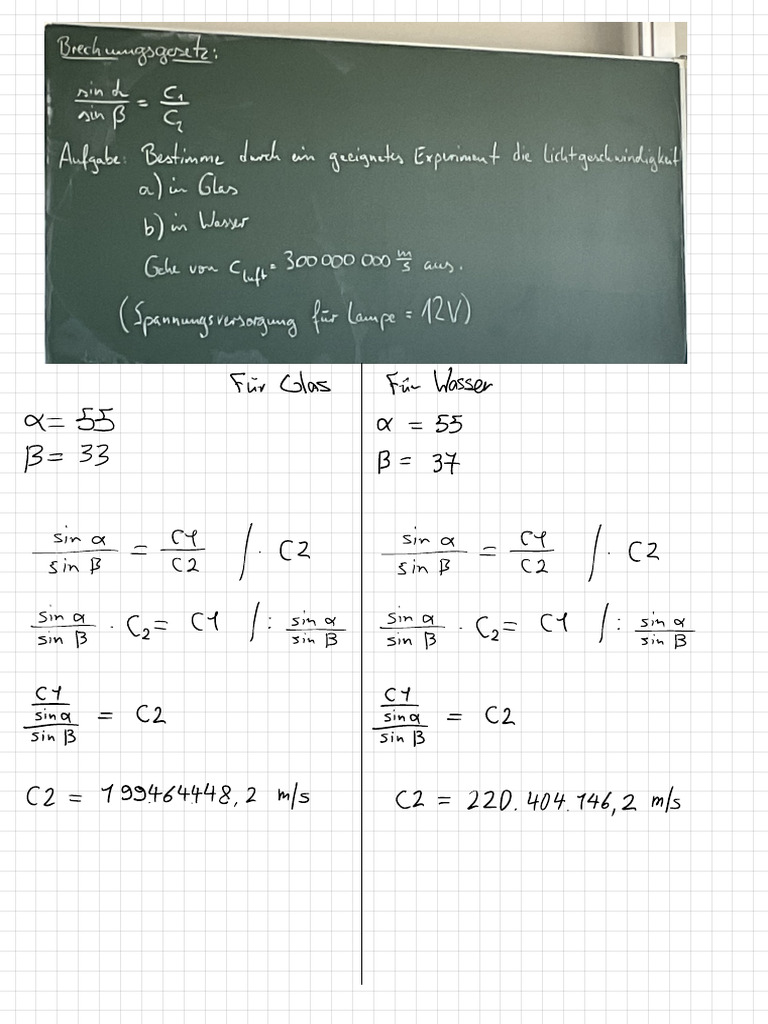 Brechungsgesetz:
sin α / sin β = C₁ / C₂
Aufgabe: Bestimme durch ein geeignetes Experiment die Lichtgeschwindigkeit
a) in Glas
b) in Wasser
Gehe von C_Luft = 300 000 000 m/s aus.
(Spannungsversorgung für Lampe = 12V)
Für Glas
α = 55
β = 33
sin α / sin β = C1 / C2 | · C2
sin α / sin β · C₂ = C1 | : sin α / sin β
C1 / (sin α / sin β) = C2
C2 = 199464448,2 m/s
Für Wasser
α = 55
β = 37
sin α / sin β = C1 / C2 | · C2
sin α / sin β · C₂ = C1 | : sin α / sin β
C1 / (sin α / sin β) = C2
C2 = 220.404.146,2 m/s